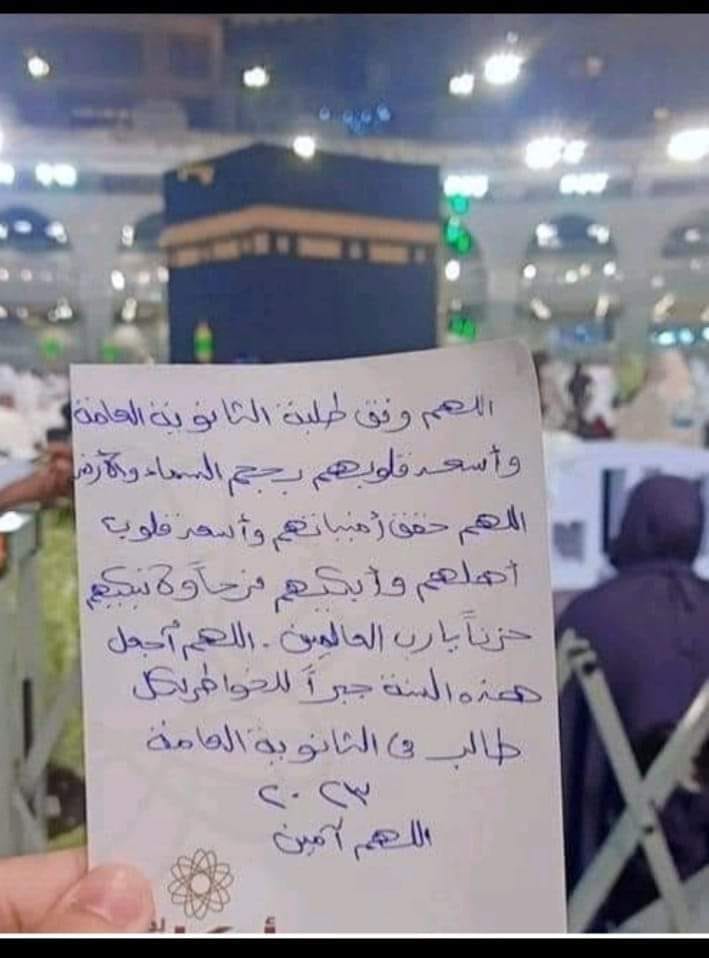 اللهم وفق طلبة الثانوية العامة
وأسعد قلوبهم بحجم السماء والأرض
اللهم حقق أمنياتهم وأسعد قلوب
أهلهم وأبكيهم فرحاً ولا تبكيهم
حزناً يارب العالمين . اللهم أجعل
هذه السنة جبراً للخواطر لكل
طالب في الثانوية العامة
٢٠٢٣
اللهم آمين